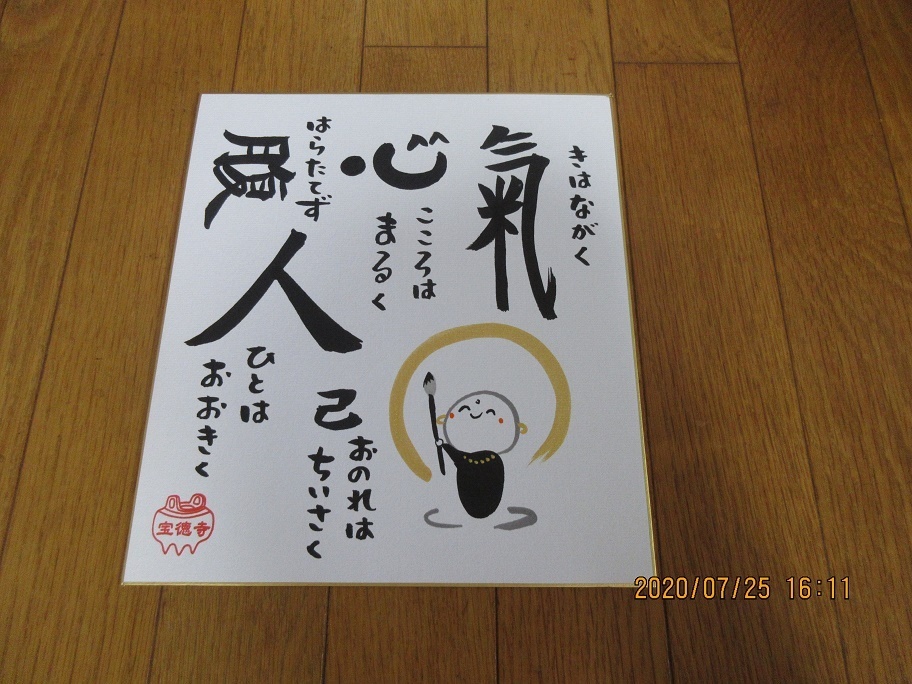 氣
きはながく
心
こころは
まるく
腹
はらたてず
人
ひとは
おおきく
己
おのれは
ちいさく
宝徳寺
2020/07/25 16:11